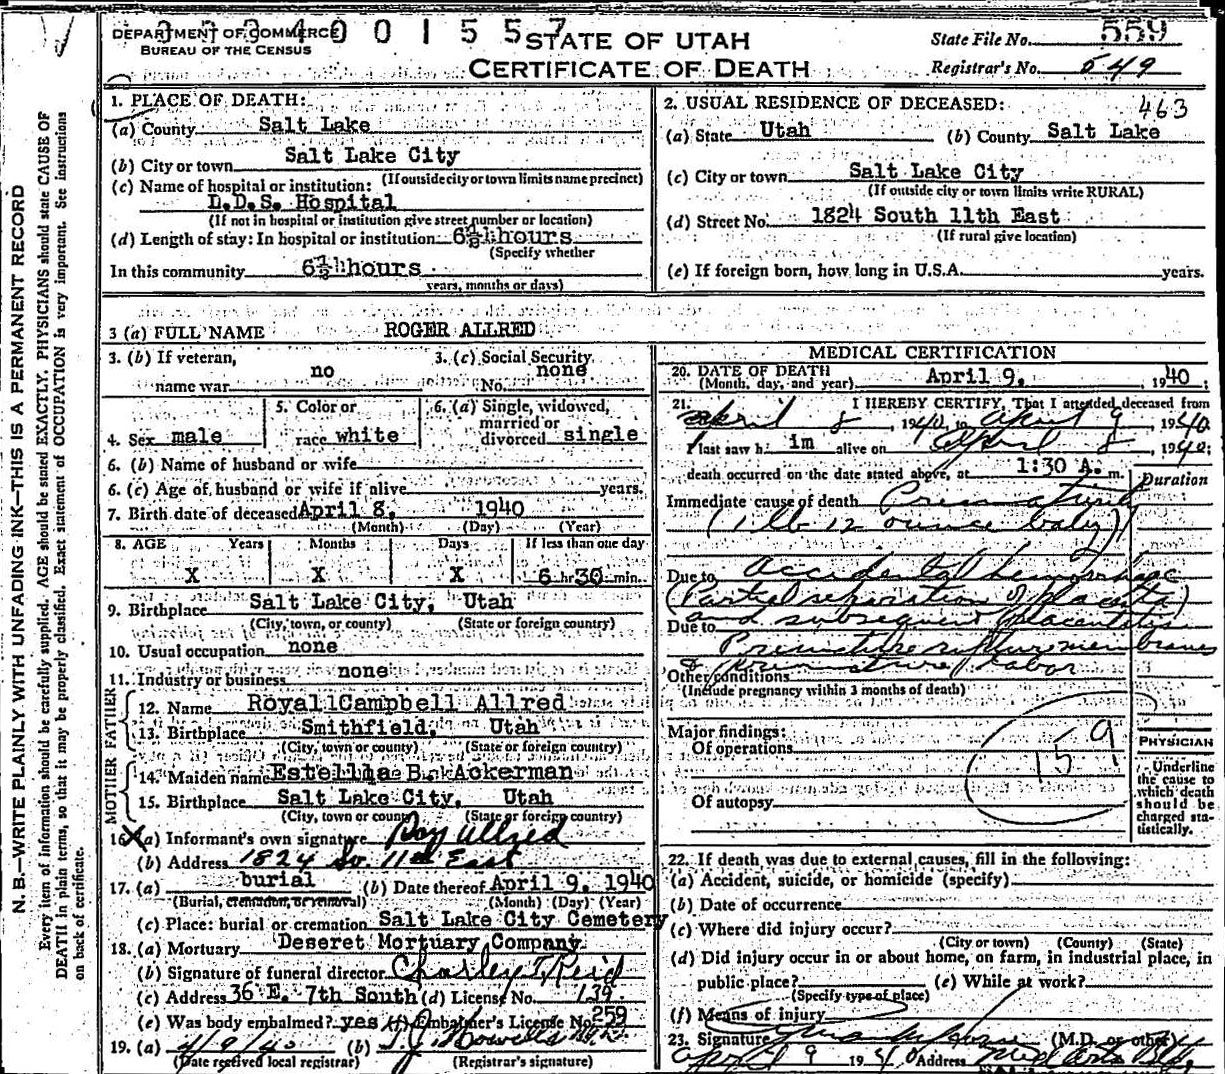 DEPARTMENT OF COMMERCE
BUREAU OF THE CENSUS
STATE OF UTAH
CERTIFICATE OF DEATH
State File No. 559
Registrar's No. 549
463
N. B.—WRITE PLAINLY WITH UNFADING INK—THIS IS A PERMANENT RECORD
Every item of information should be carefully supplied. AGE should be stated EXACTLY. PHYSICIANS should state CAUSE OF
DEATH in plain terms, so that it may be properly classified. Exact statement of OCCUPATION is very important. See instructions
on back of certificate.
1. PLACE OF DEATH:
(a) County Salt Lake
(b) City or town Salt Lake City
(If outside city or town limits name precinct)
(c) Name of hospital or institution:
L.D.S. Hospital
(If not in hospital or institution give street number or location)
(d) Length of stay: In hospital or institution 6½ hours
(Specify whether
In this community 6½ hours
years, months or days)
2. USUAL RESIDENCE OF DECEASED:
(a) State Utah (b) County Salt Lake
(c) City or town Salt Lake City
(If outside city or town limits write RURAL)
(d) Street No. 1824 South 11th East
(If rural give location)
(e) If foreign born, how long in U.S.A. years.
3 (a) FULL NAME ROGER ALLRED
3. (b) If veteran, name war no
3. (c) Social Security No. none
4. Sex male
5. Color or race white
6. (a) Single, widowed, married or divorced single
6. (b) Name of husband or wife
6. (c) Age of husband or wife if alive years.
7. Birth date of deceased April 8, 1940
(Month) (Day) (Year)
8. AGE Years Months Days If less than one day
X X X 6 hr 30 min.
9. Birthplace Salt Lake City, Utah
(City, town, or county) (State or foreign country)
10. Usual occupation none
11. Industry or business none
FATHER
12. Name Royall Campbell Allred
13. Birthplace Smithfield, Utah
(City, town or county) (State or foreign country)
MOTHER
14. Maiden name Estella B. Ackerman
15. Birthplace Salt Lake City, Utah
(City, town or county) (State or foreign country)
16. (a) Informant's own signature Roy Allred
(b) Address 1824 So 11th East
17. (a) burial (b) Date thereof April 9, 1940
(Burial, cremation, or removal) (Month) (Day) (Year)
(c) Place: burial or cremation Salt Lake City Cemetery
18. (a) Mortuary Deseret Mortuary Company
(b) Signature of funeral director Charley T. Reid
(c) Address 36 E. 7th South (d) License No. 139
(e) Was body embalmed? yes (f) Embalmer's License No. 259
19. (a) 4/9/40 (b)
(Date received local registrar) (Registrar's signature)
MEDICAL CERTIFICATION
20. DATE OF DEATH
(Month, day, and year) April 9, 1940;
21. I HEREBY CERTIFY, That I attended deceased from
April 8, 1940, to April 9 1940
I last saw him alive on April 8, 1940;
death occurred on the date stated above, at 1:30 A. m.
Duration
Immediate cause of death Prematurity
(1 lb 12 ounce baby)
Due to Accidental hemorrhage
(Partial separation of placenta)
Due to and subsequent
Premature rupture membranes
& premature labor
Other conditions
(Include pregnancy within 3 months of death)
Major findings:
Of operations
159
Of autopsy
PHYSICIAN
Underline
the cause to
which death
should be
charged sta-
tistically.
22. If death was due to external causes, fill in the following:
(a) Accident, suicide, or homicide (specify)
(b) Date of occurrence
(c) Where did injury occur?
(City or town) (County) (State)
(d) Did injury occur in or about home, on farm, in industrial place, in
public place? (e) While at work?
(Specify type of place)
(f) Means of injury
23. Signature (M.D. or other)
April 9 1940 Address Med Arts Bldg